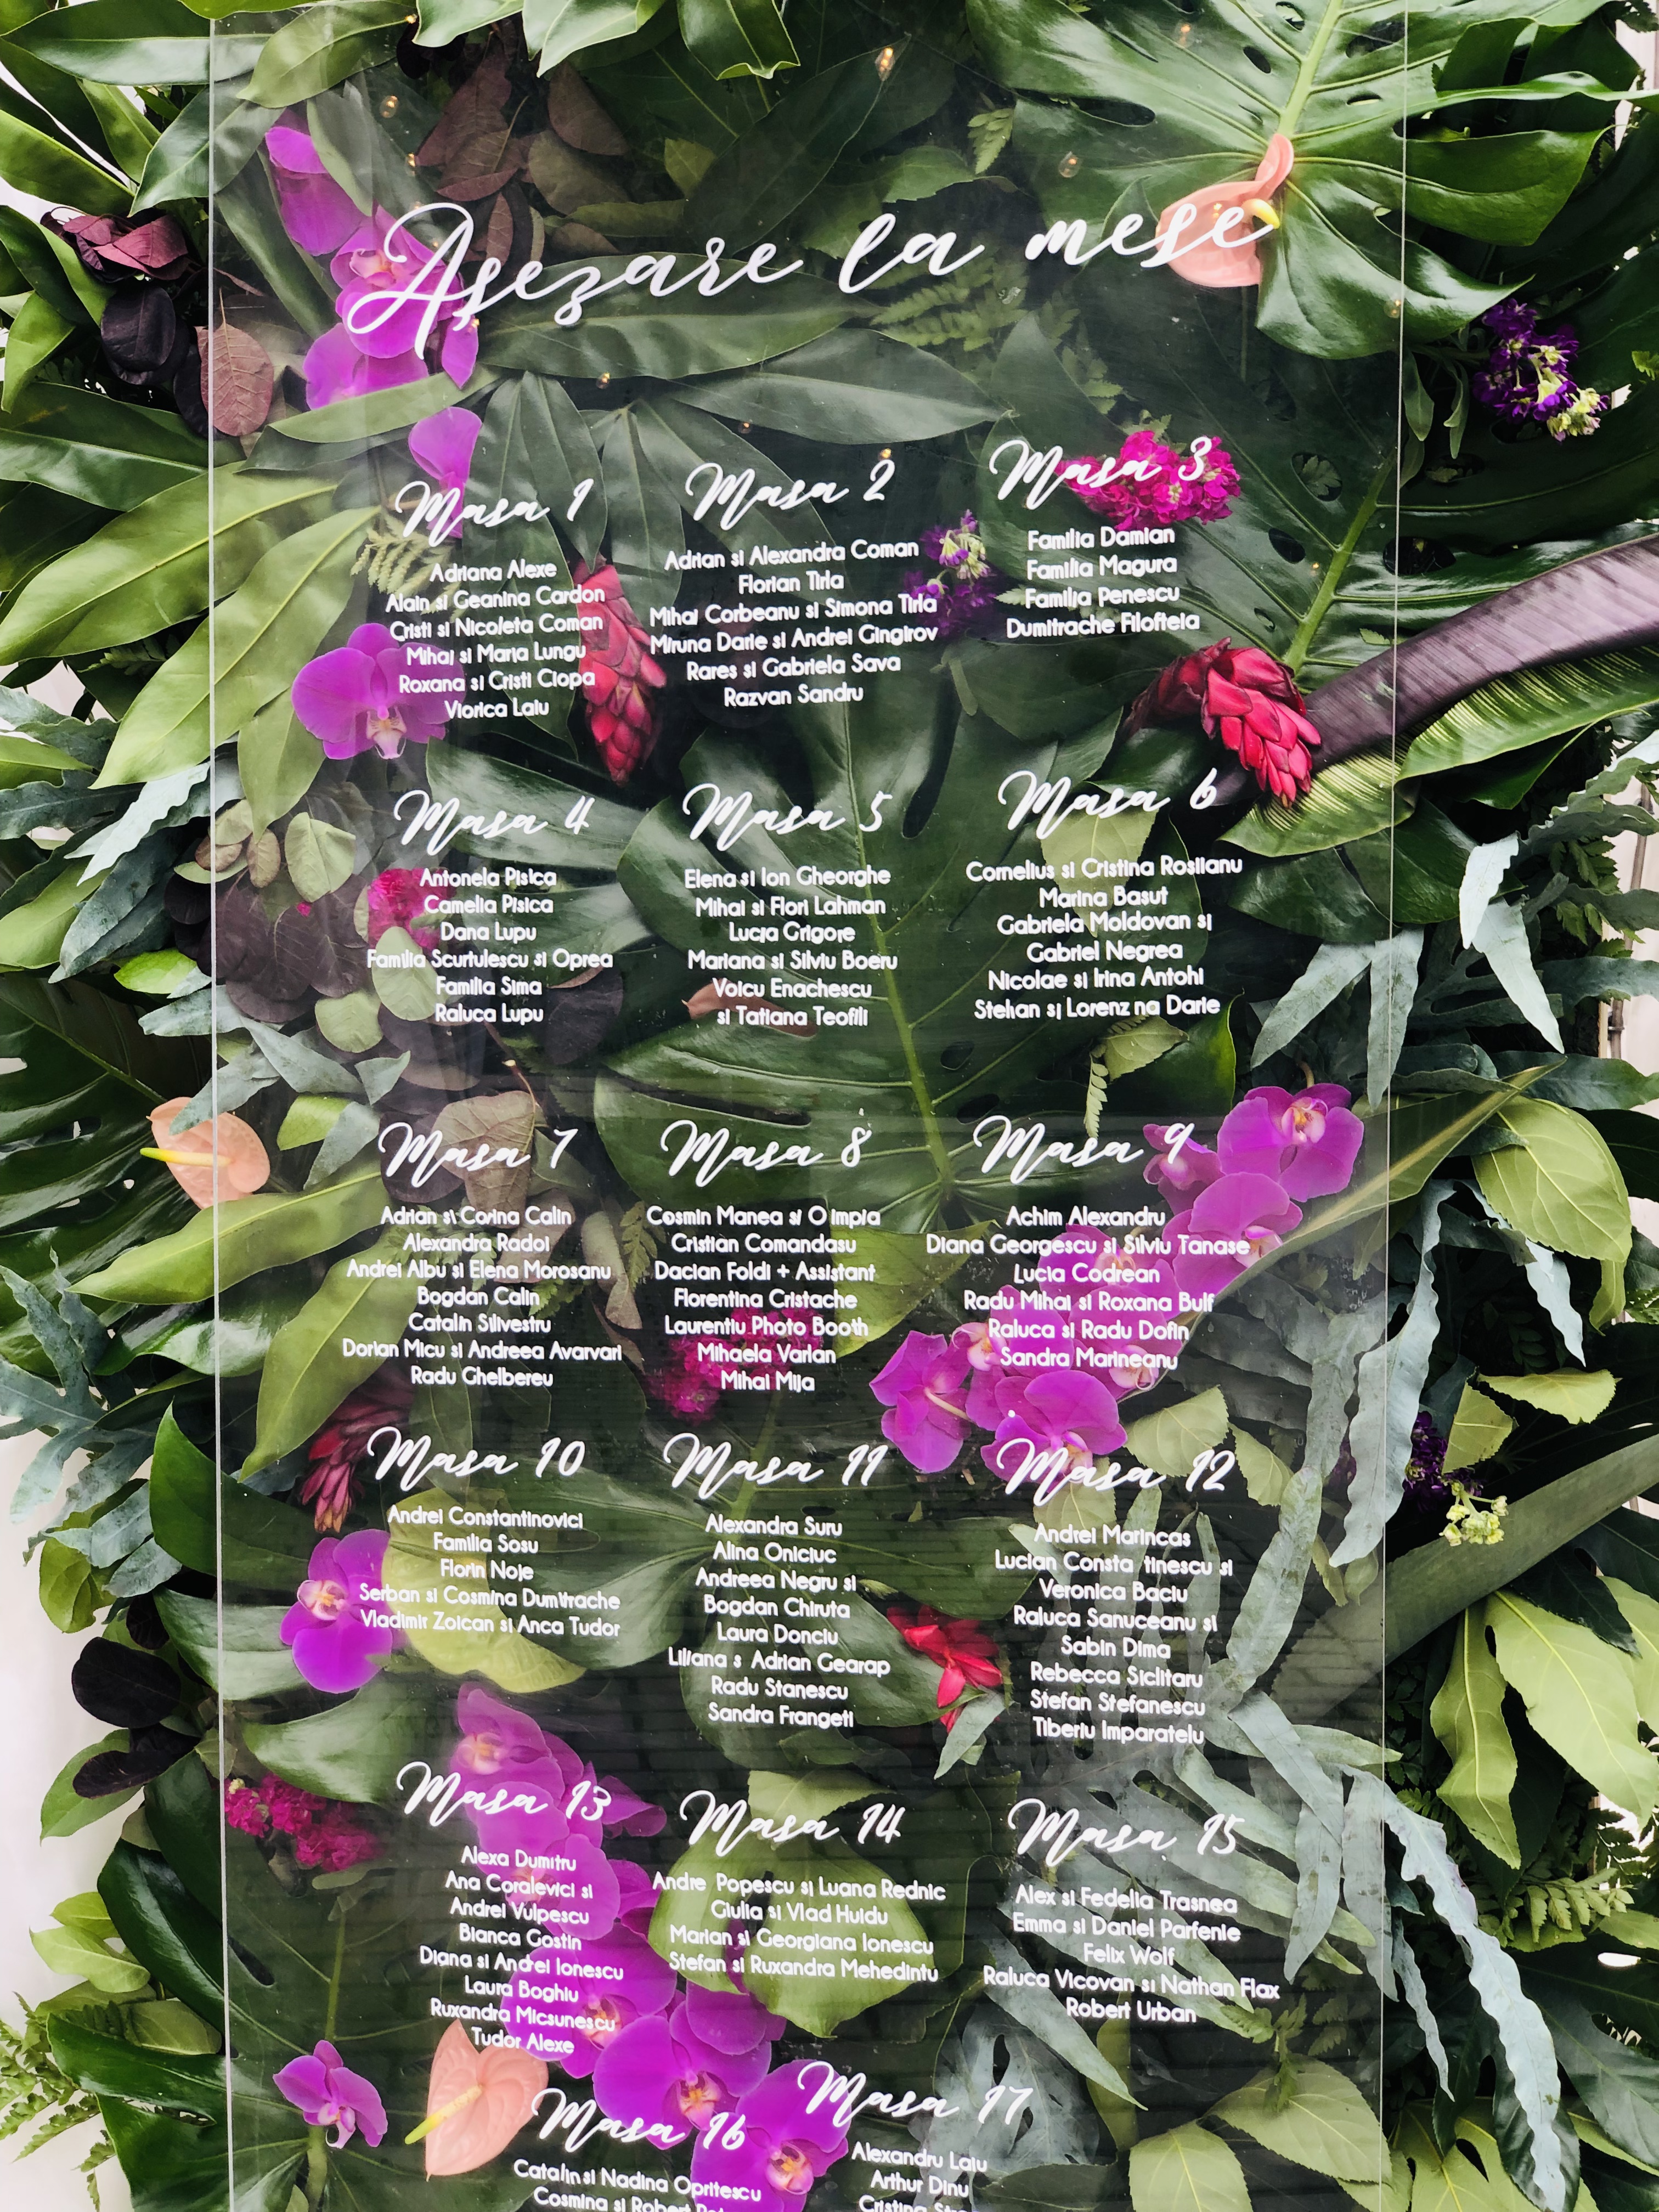 Asezare la mese
Masa 1
Adriana Alexe
Alain si Geanina Cardon
Cristi si Nicoleta Coman
Mihai si Maria Lungu
Roxana si Cristi Ciopa
Viorica Laiu
Masa 2
Adrian si Alexandra Coman
Florian Tirla
Mihai Corbeanu si Simona Tirla
Miruna Darie si Andrei Gingirov
Rares si Gabriela Sava
Razvan Sandru
Masa 3
Familia Damian
Familia Magura
Familia Penescu
Dumitrache Filofteia
Masa 4
Antonela Pisica
Camelia Pisica
Dana Lupu
Familia Scurtulescu si Oprea
Familia Sima
Raluca Lupu
Masa 5
Elena si Ion Gheorghe
Mihai si Flori Lahman
Lucia Grigore
Mariana si Silviu Boeru
Voicu Enachescu
si Tatiana Teofili
Masa 6
Cornelius si Cristina Rosiianu
Marina Basut
Gabriela Moldovan si
Gabriel Negrea
Nicolae si Irina Antohi
Stelian si Lorenz na Darie
Masa 7
Adrian si Corina Calin
Alexandra Radoi
Andrei Albu si Elena Morosanu
Bogdan Calin
Catalin Silivestru
Dorian Micu si Andreea Avarvari
Radu Ghelbereu
Masa 8
Cosmin Manea si O impia
Cristian Comandasu
Dacian Foldi + Assistant
Florentina Cristache
Laurentiu Photo Booth
Mihaela Varlan
Mihai Mija
Masa 9
Achim Alexandru
Diana Georgescu si Silviu Tanase
Lucia Codrean
Radu Mihai si Roxana Bulf
Raluca si Radu Dofin
Sandra Marineanu
Masa 10
Andrei Constantinovici
Familia Sosu
Florin Noje
Serban si Cosmina Dumitrache
Vladimir Zoican si Anca Tudor
Masa 11
Alexandra Suru
Alina Oniciuc
Andreea Negru si
Bogdan Chiruta
Laura Donciu
Liliana s Adrian Gearap
Radu Stanescu
Sandra Frangeti
Masa 12
Andrei Marincas
Lucian Consta tinescu si
Veronica Baciu
Raluca Sanuceanu si
Sabin Dima
Rebecca Siclitaru
Stefan Stefanescu
Tiberiu Imparatelu
Masa 13
Alexa Dumitru
Ana Coralevici si
Andrei Vulpescu
Bianca Gostin
Diana si Andrei Ionescu
Laura Boghiu
Ruxandra Micsunescu
Tudor Alexe
Masa 14
Andre Popescu si Luana Rednic
Giulia si Vlad Huidu
Marian si Georgiana Ionescu
Stefan si Ruxandra Mehedintu
Masa 15
Alex si Fedelia Trasnea
Emma si Daniel Parfenie
Felix Wolf
Raluca Vicovan si Nathan Flax
Robert Urban
Masa 16
Catalin si Nadina Opritescu
Cosmina si Robert
Masa 17
Alexandru Laiu
Arthur Dinu
Cristina